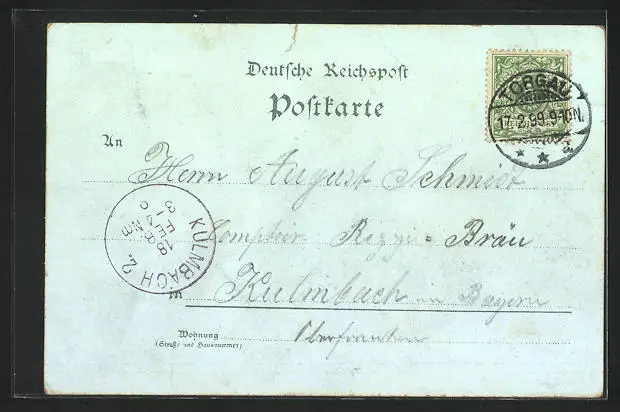 Deutsche Reichspost
Postkarte
TORGAU
17.2.99.9-10N.
An
Herrn August Schmidt
Comptoir Rizzi = Bräu
KULMBACH 2.
18
FEB
NM
3-4
in Kulmbach in Bayern
Oberfranken
Wohnung
(Straße und Hausnummer)